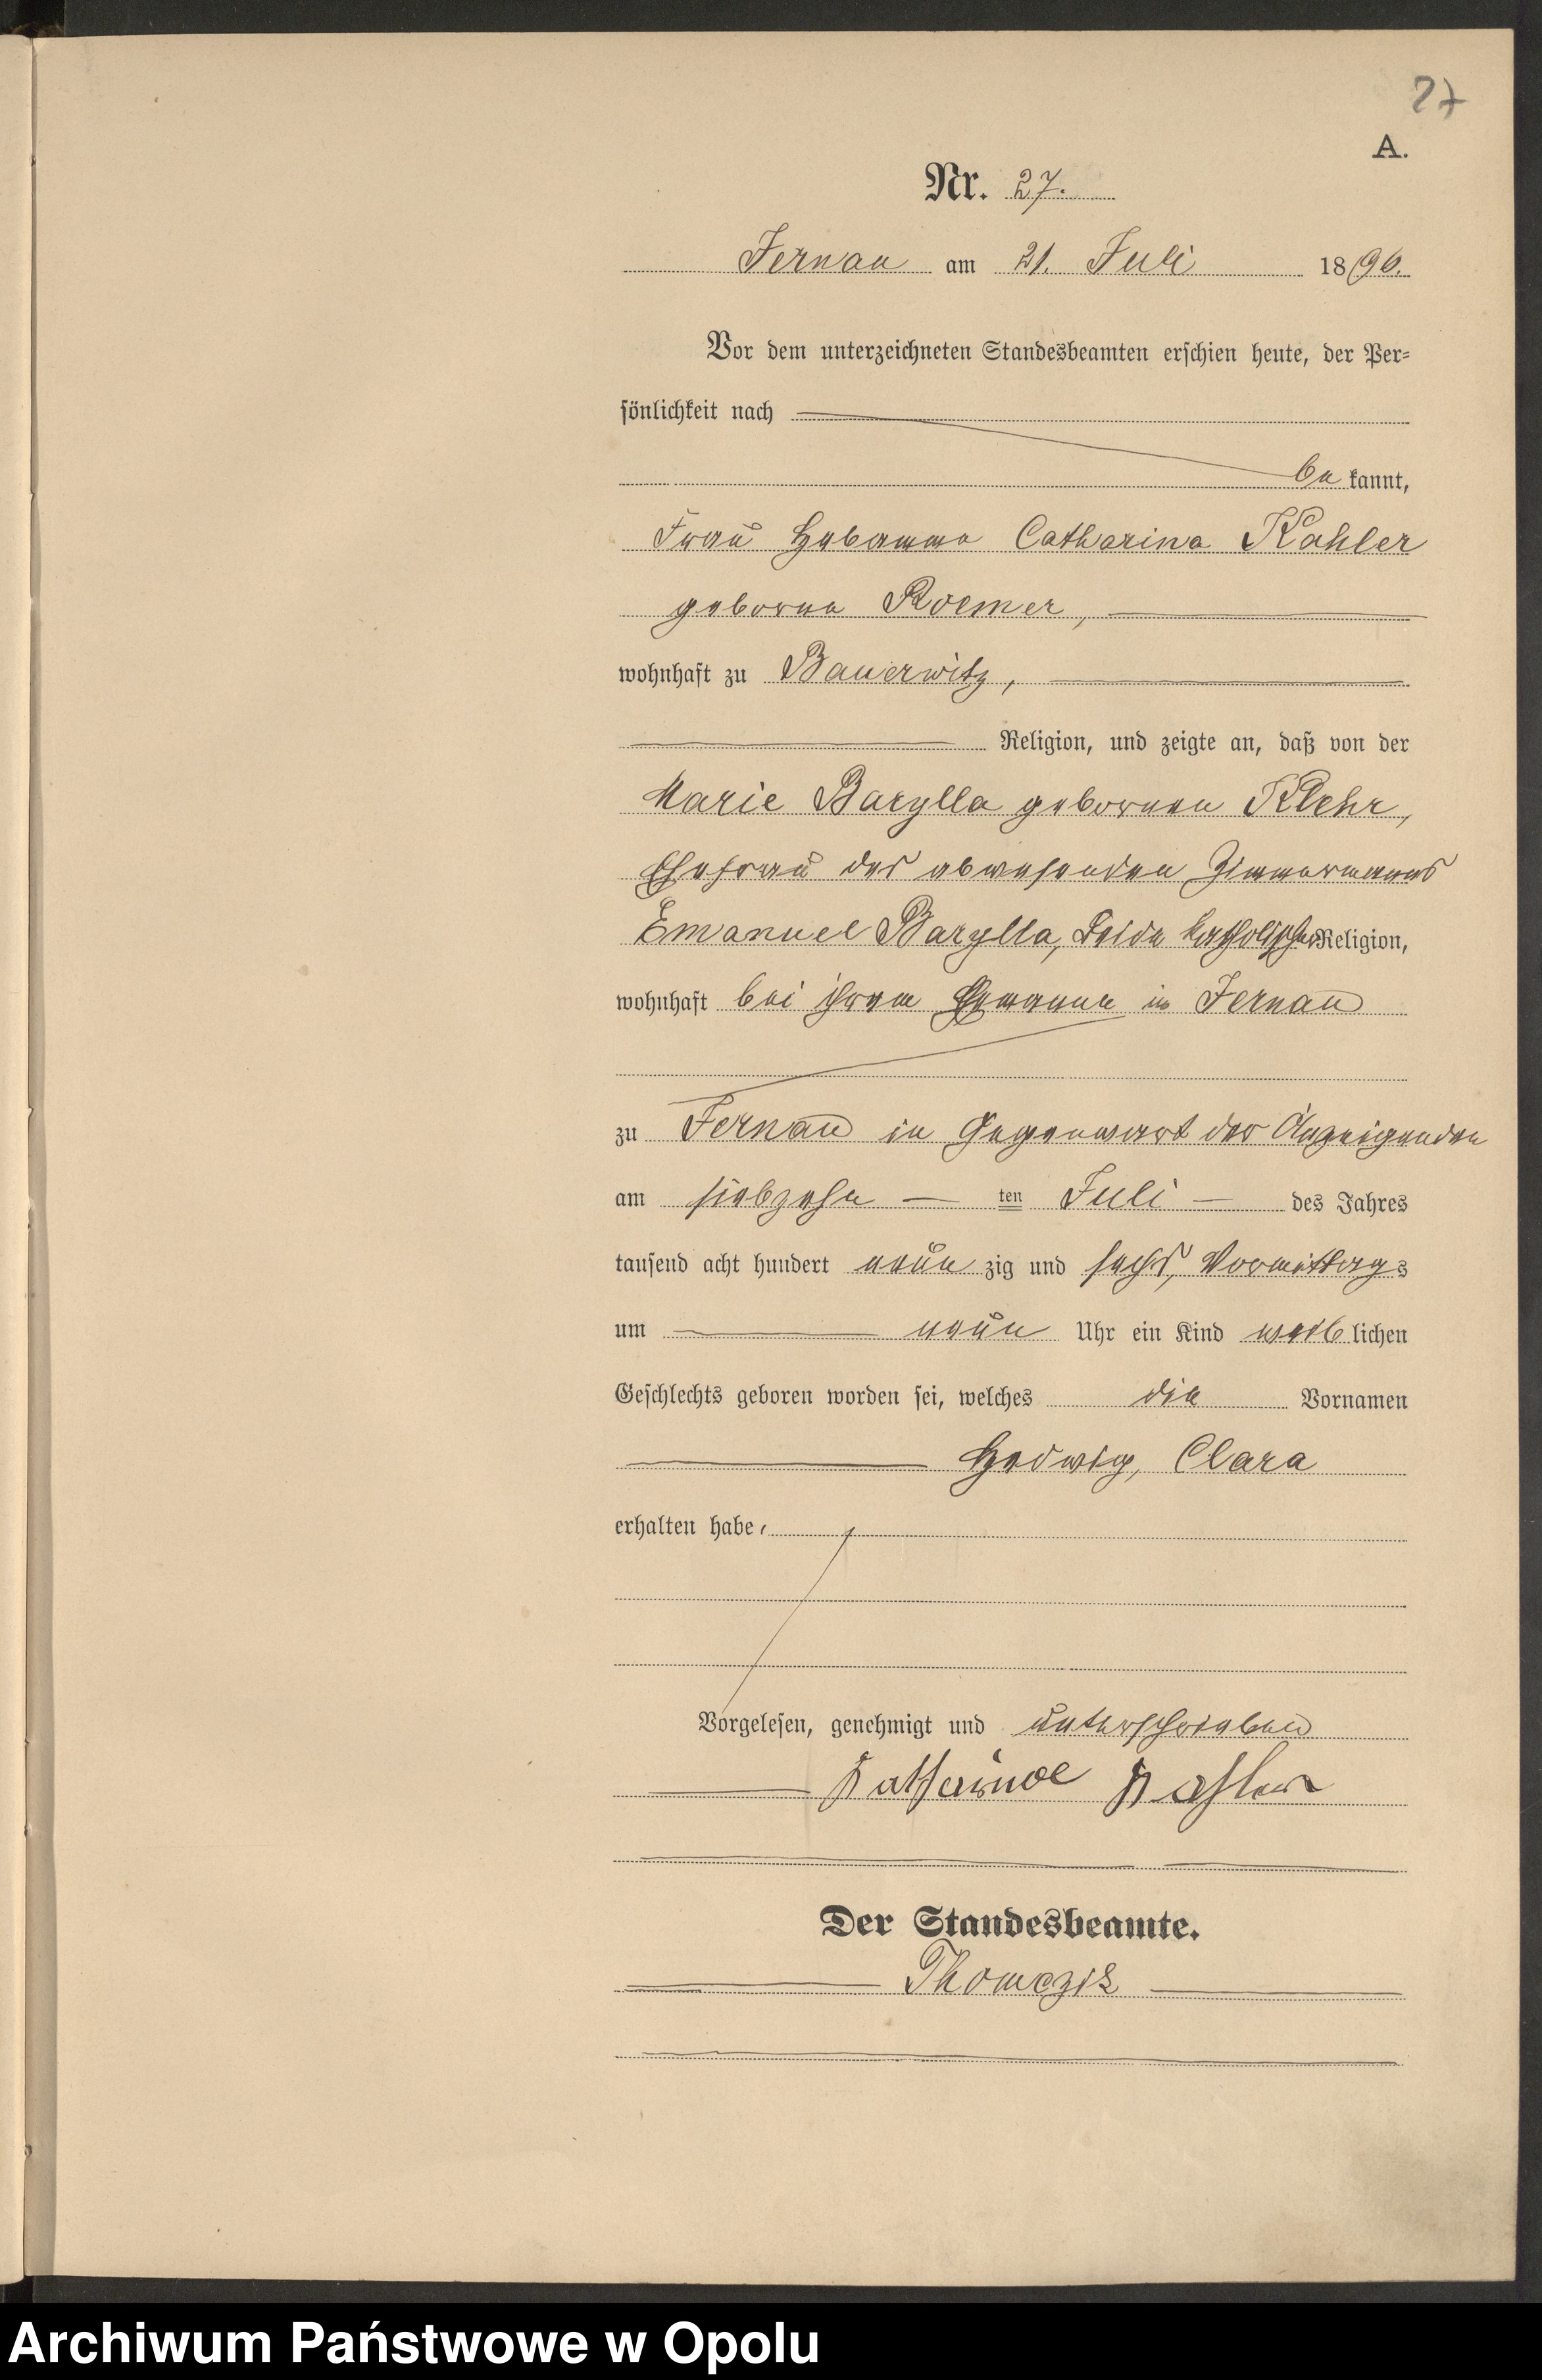 27
A.
Nr. 27.
Jernau am 21. Juli 1896.
Vor dem unterzeichneten Standesbeamten erschien heute, der Per-
sönlichkeit nach
be kannt,
Frau Hebamme Catharina Kahler
geborene Roemer,
wohnhaft zu Bauerwitz,
Religion, und zeigte an, daß von der
Marie Barylla geborenen Klehr,
Ehefrau des abwesenden Zimmermanns
Emanuel Barylla, beide katholischer Religion,
wohnhaft bei ihrem Ehemanne in Jernau
zu Jernau in Gegenwart der Anzeigenden
am siebzehn ten Juli des Jahres
tausend acht hundert neun zig und sechs, Vormittags
um neun Uhr ein Kind weib lichen
Geschlechts geboren worden sei, welches die Vornamen
Hedwig, Clara
erhalten habe,
Vorgelesen, genehmigt und unterschrieben
Katharina Kahler
Der Standesbeamte.
Thomczik
Archiwum Państwowe w Opolu